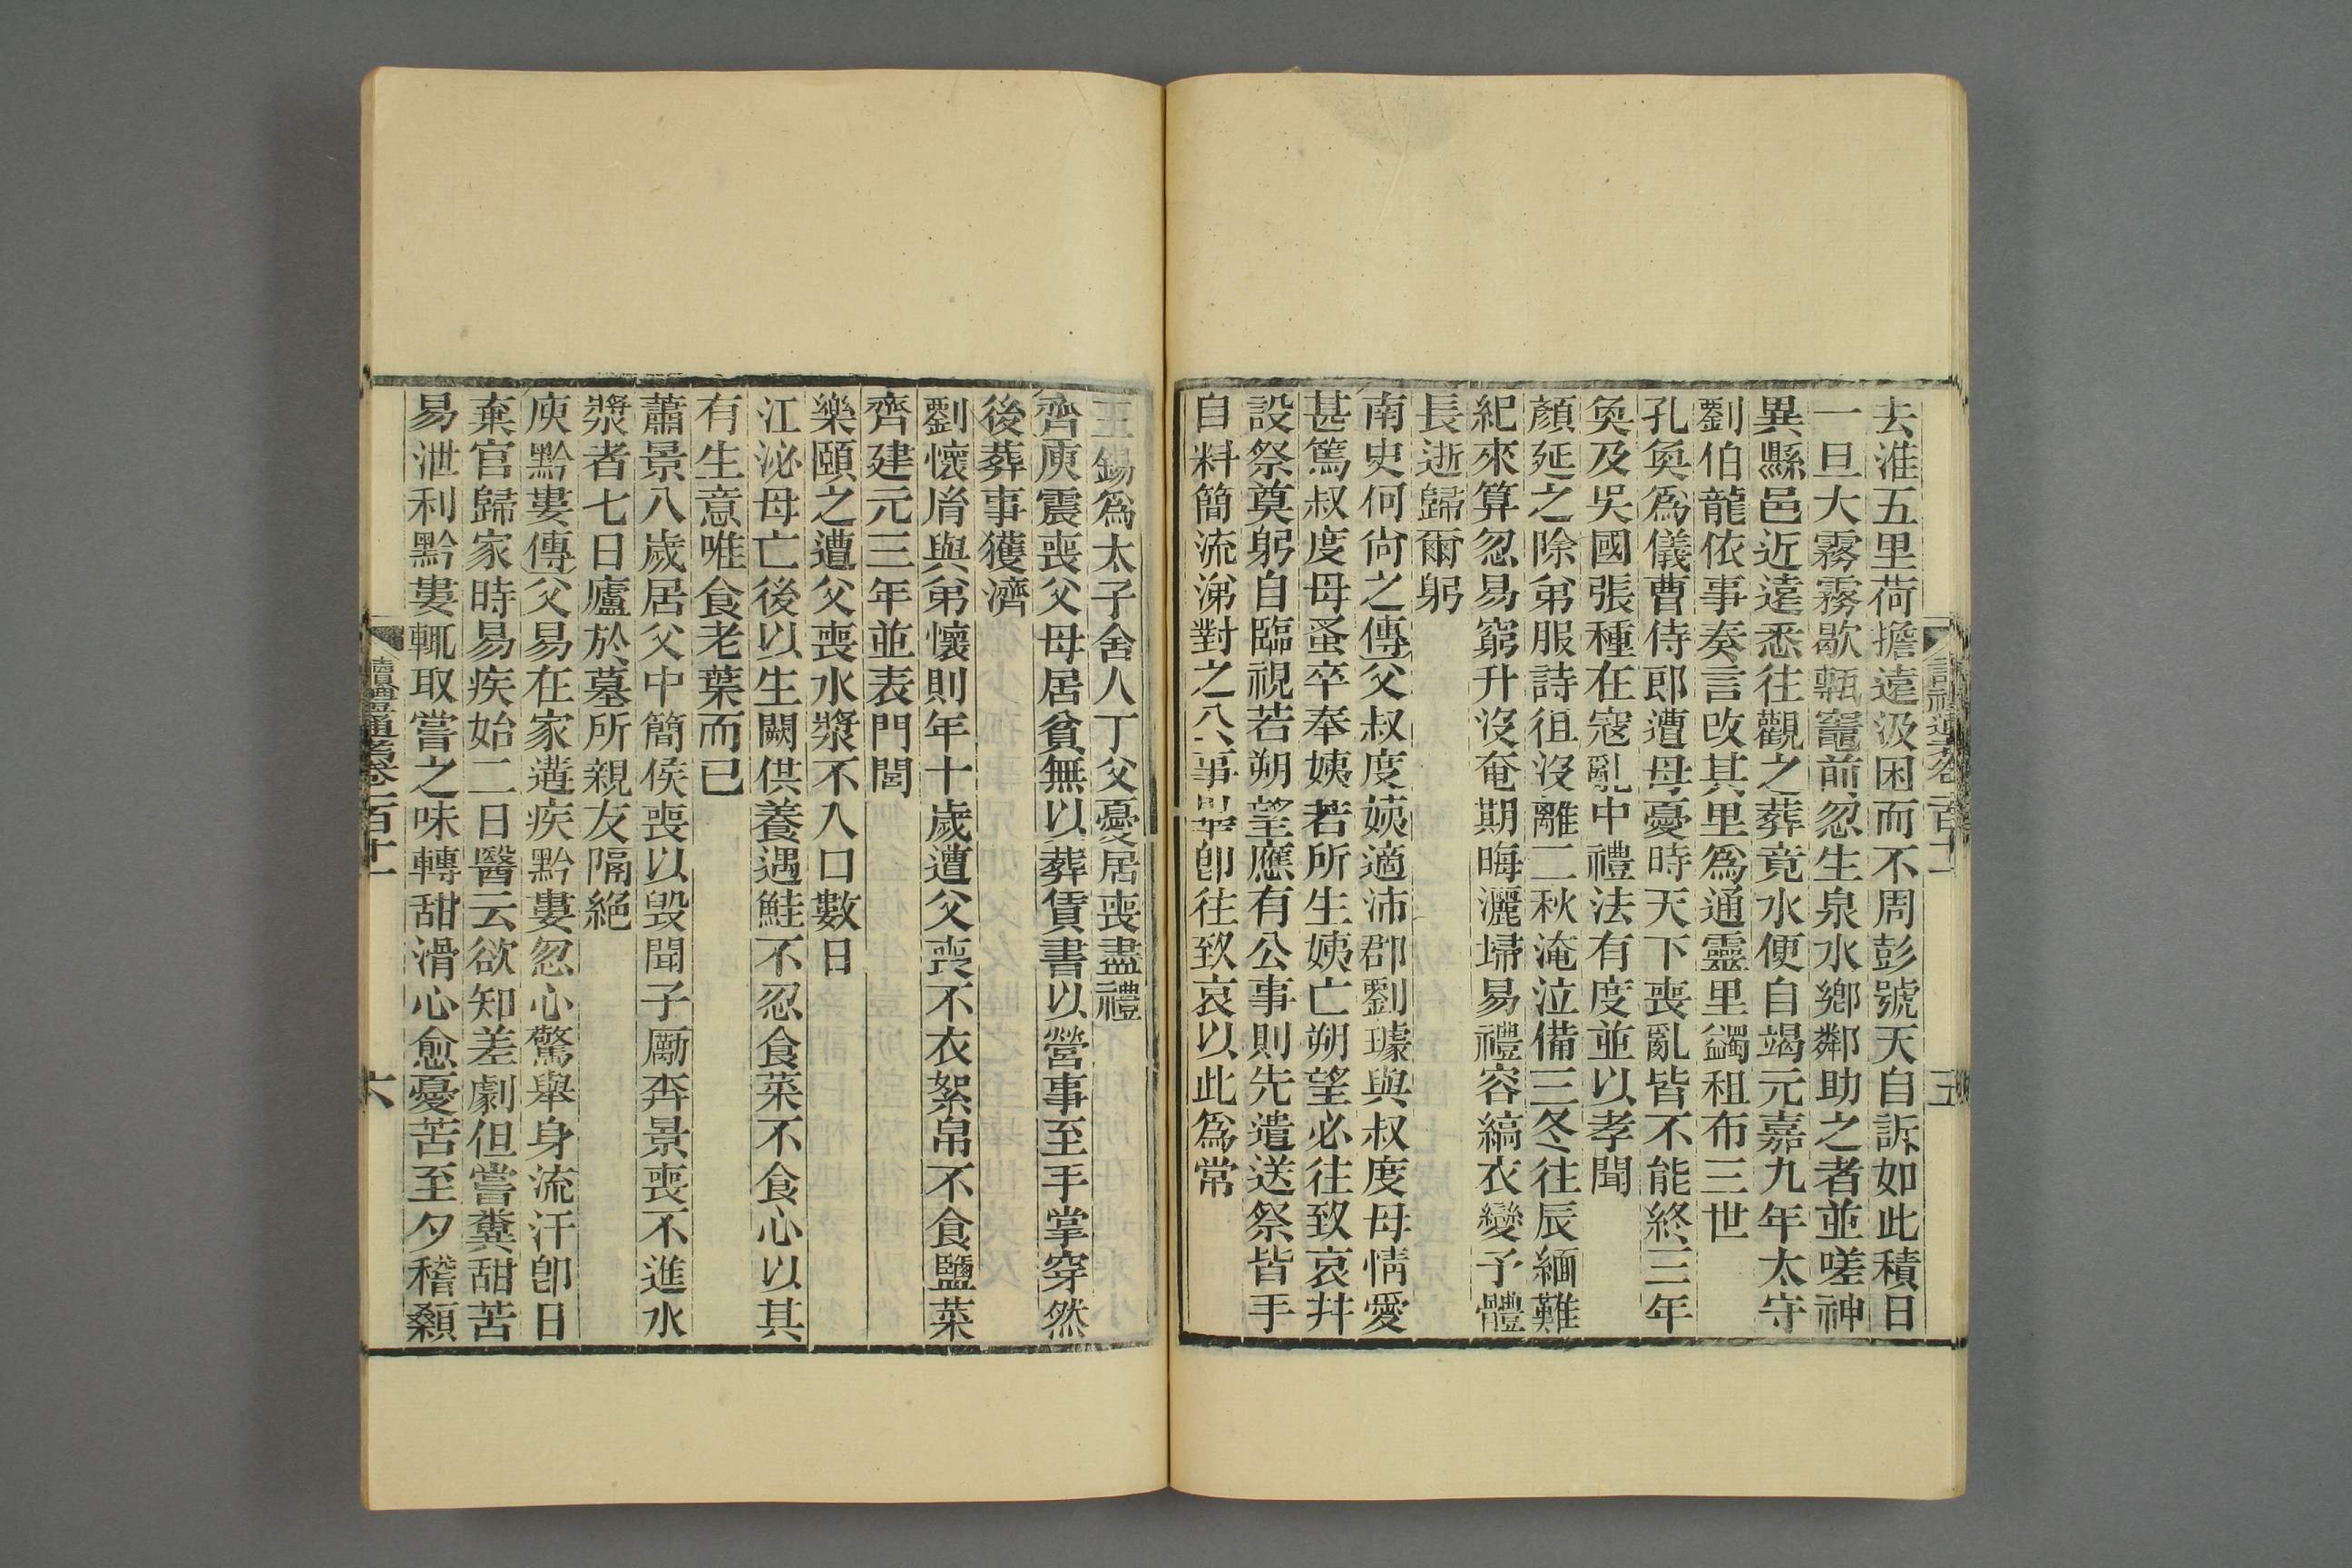 去淮五里荷擔遠汲困而不周彭號天自訴如此積日
一旦大霧霧歇甎竈前忽生泉水鄉鄰助之者並嗟神
異縣邑近遠悉往觀之葬竟水便自竭元嘉九年太守
劉伯龍依事奏言改其里爲通靈里蠲租布三世
孔奐爲儀曹侍郎遭母憂時天下喪亂皆不能終三年
奐及吳國張種在寇亂中禮法有度並以孝聞
顏延之除弟服詩徂沒離二秋淹泣備三冬往辰緬難
紀來算忽易窮升沒奄期晦灑埽易禮容縞衣變予體
長逝歸爾躬
南史何尚之傳父叔度姨適沛郡劉璩與叔度母情愛
甚篤叔度母蚤卒奉姨若所生姨亡朔望必往致哀幷
設祭奠躬自臨視若朔望應有公事則先遣送祭皆手
自料簡流涕對之公事畢卽往致哀以此爲常
讀禮通考卷一百十一
五
王錫爲太子舍人丁父憂居喪盡禮
齊庾震喪父母居貧無以葬賃書以營事至手掌穿然
後葬事獲濟
劉懷胤與弟懷則年十歲遭父喪不衣絮帛不食鹽菜
齊建元三年並表門閭
樂頤之遭父喪水漿不入口數日
江泌母亡後以生闕供養遇鮭不忍食菜不食心以其
有生意唯食老葉而已
蕭景八歲居父中簡侯喪以毀聞子勵奔景喪不進水
漿者七日廬於墓所親友隔絕
庾黔婁傳父易在家遘疾黔婁忽心驚舉身流汗卽日
棄官歸家時易疾始二日醫云欲知差劇但嘗糞甜苦
易泄利黔婁輒取嘗之味轉甜滑心愈憂苦至夕稽顙
讀禮通考卷一百十一
六